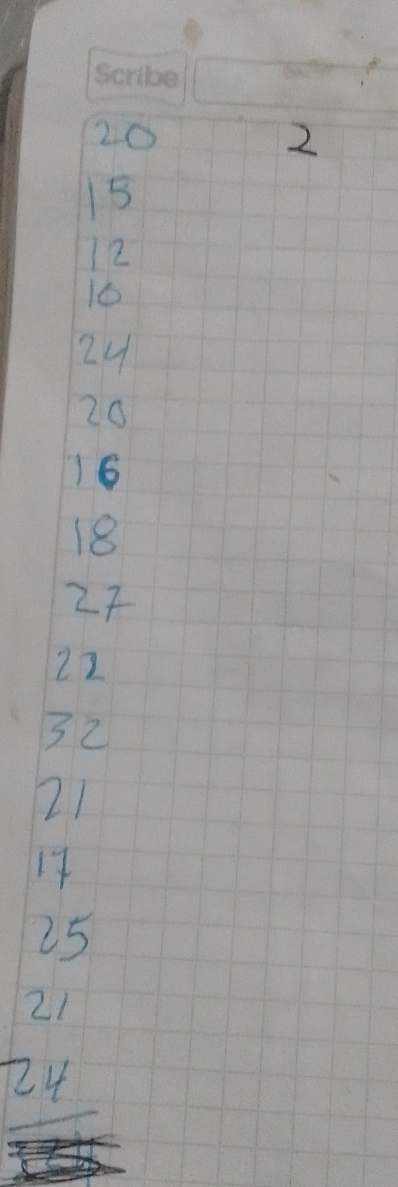 Scribe
20 2
15
12
10
24
20
16
18
27
22
32
21
17
25
21
24